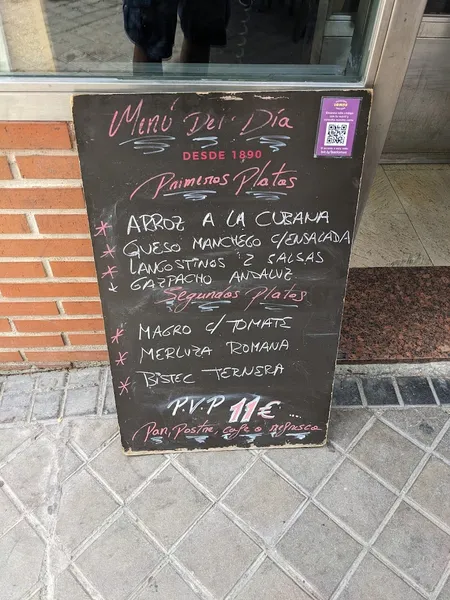 Menú Del Día
DESDE 1890
Primeros Platos
* ARROZ A LA CUBANA
* QUESO MANCHEGO C/ENSALADA
* LANGOSTINOS 2 SALSAS
* GAZPACHO ANDALUZ
Segundos Platos
* MAGRO C/ TOMATE
* MERLUZA ROMANA
* BISTEC TERNERA
P.V.P 11€
Pan, Postre, Cafe o Refresco